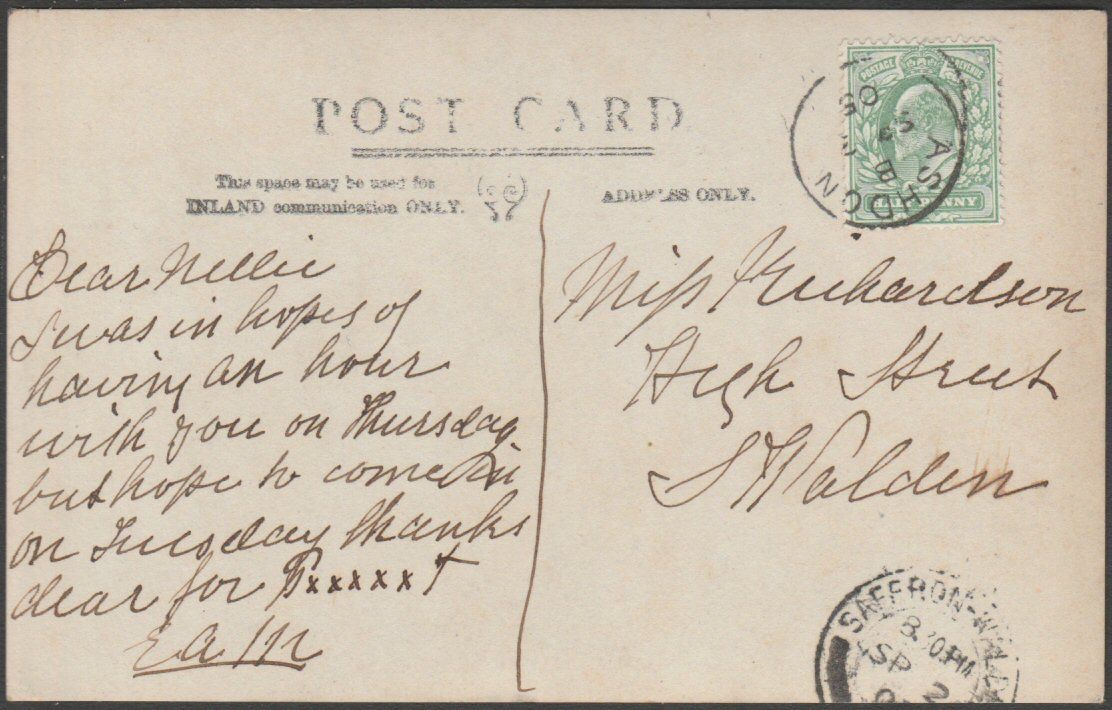 POST CARD
This space may be used for
INLAND communication ONLY.
ADDRESS ONLY.
POSTAGE REVENUE
HALFPENNY
ASHDON
B
SP
05
Dear Nellie
I was in hopes of
having an hour
with you on Thursday
but hope to come in
on Tuesday thanks
dear for P x x x x x t
E A M
Miss Richardson
High Street
S Walden
SAFFRON-WALD
8.30PM
SP 2